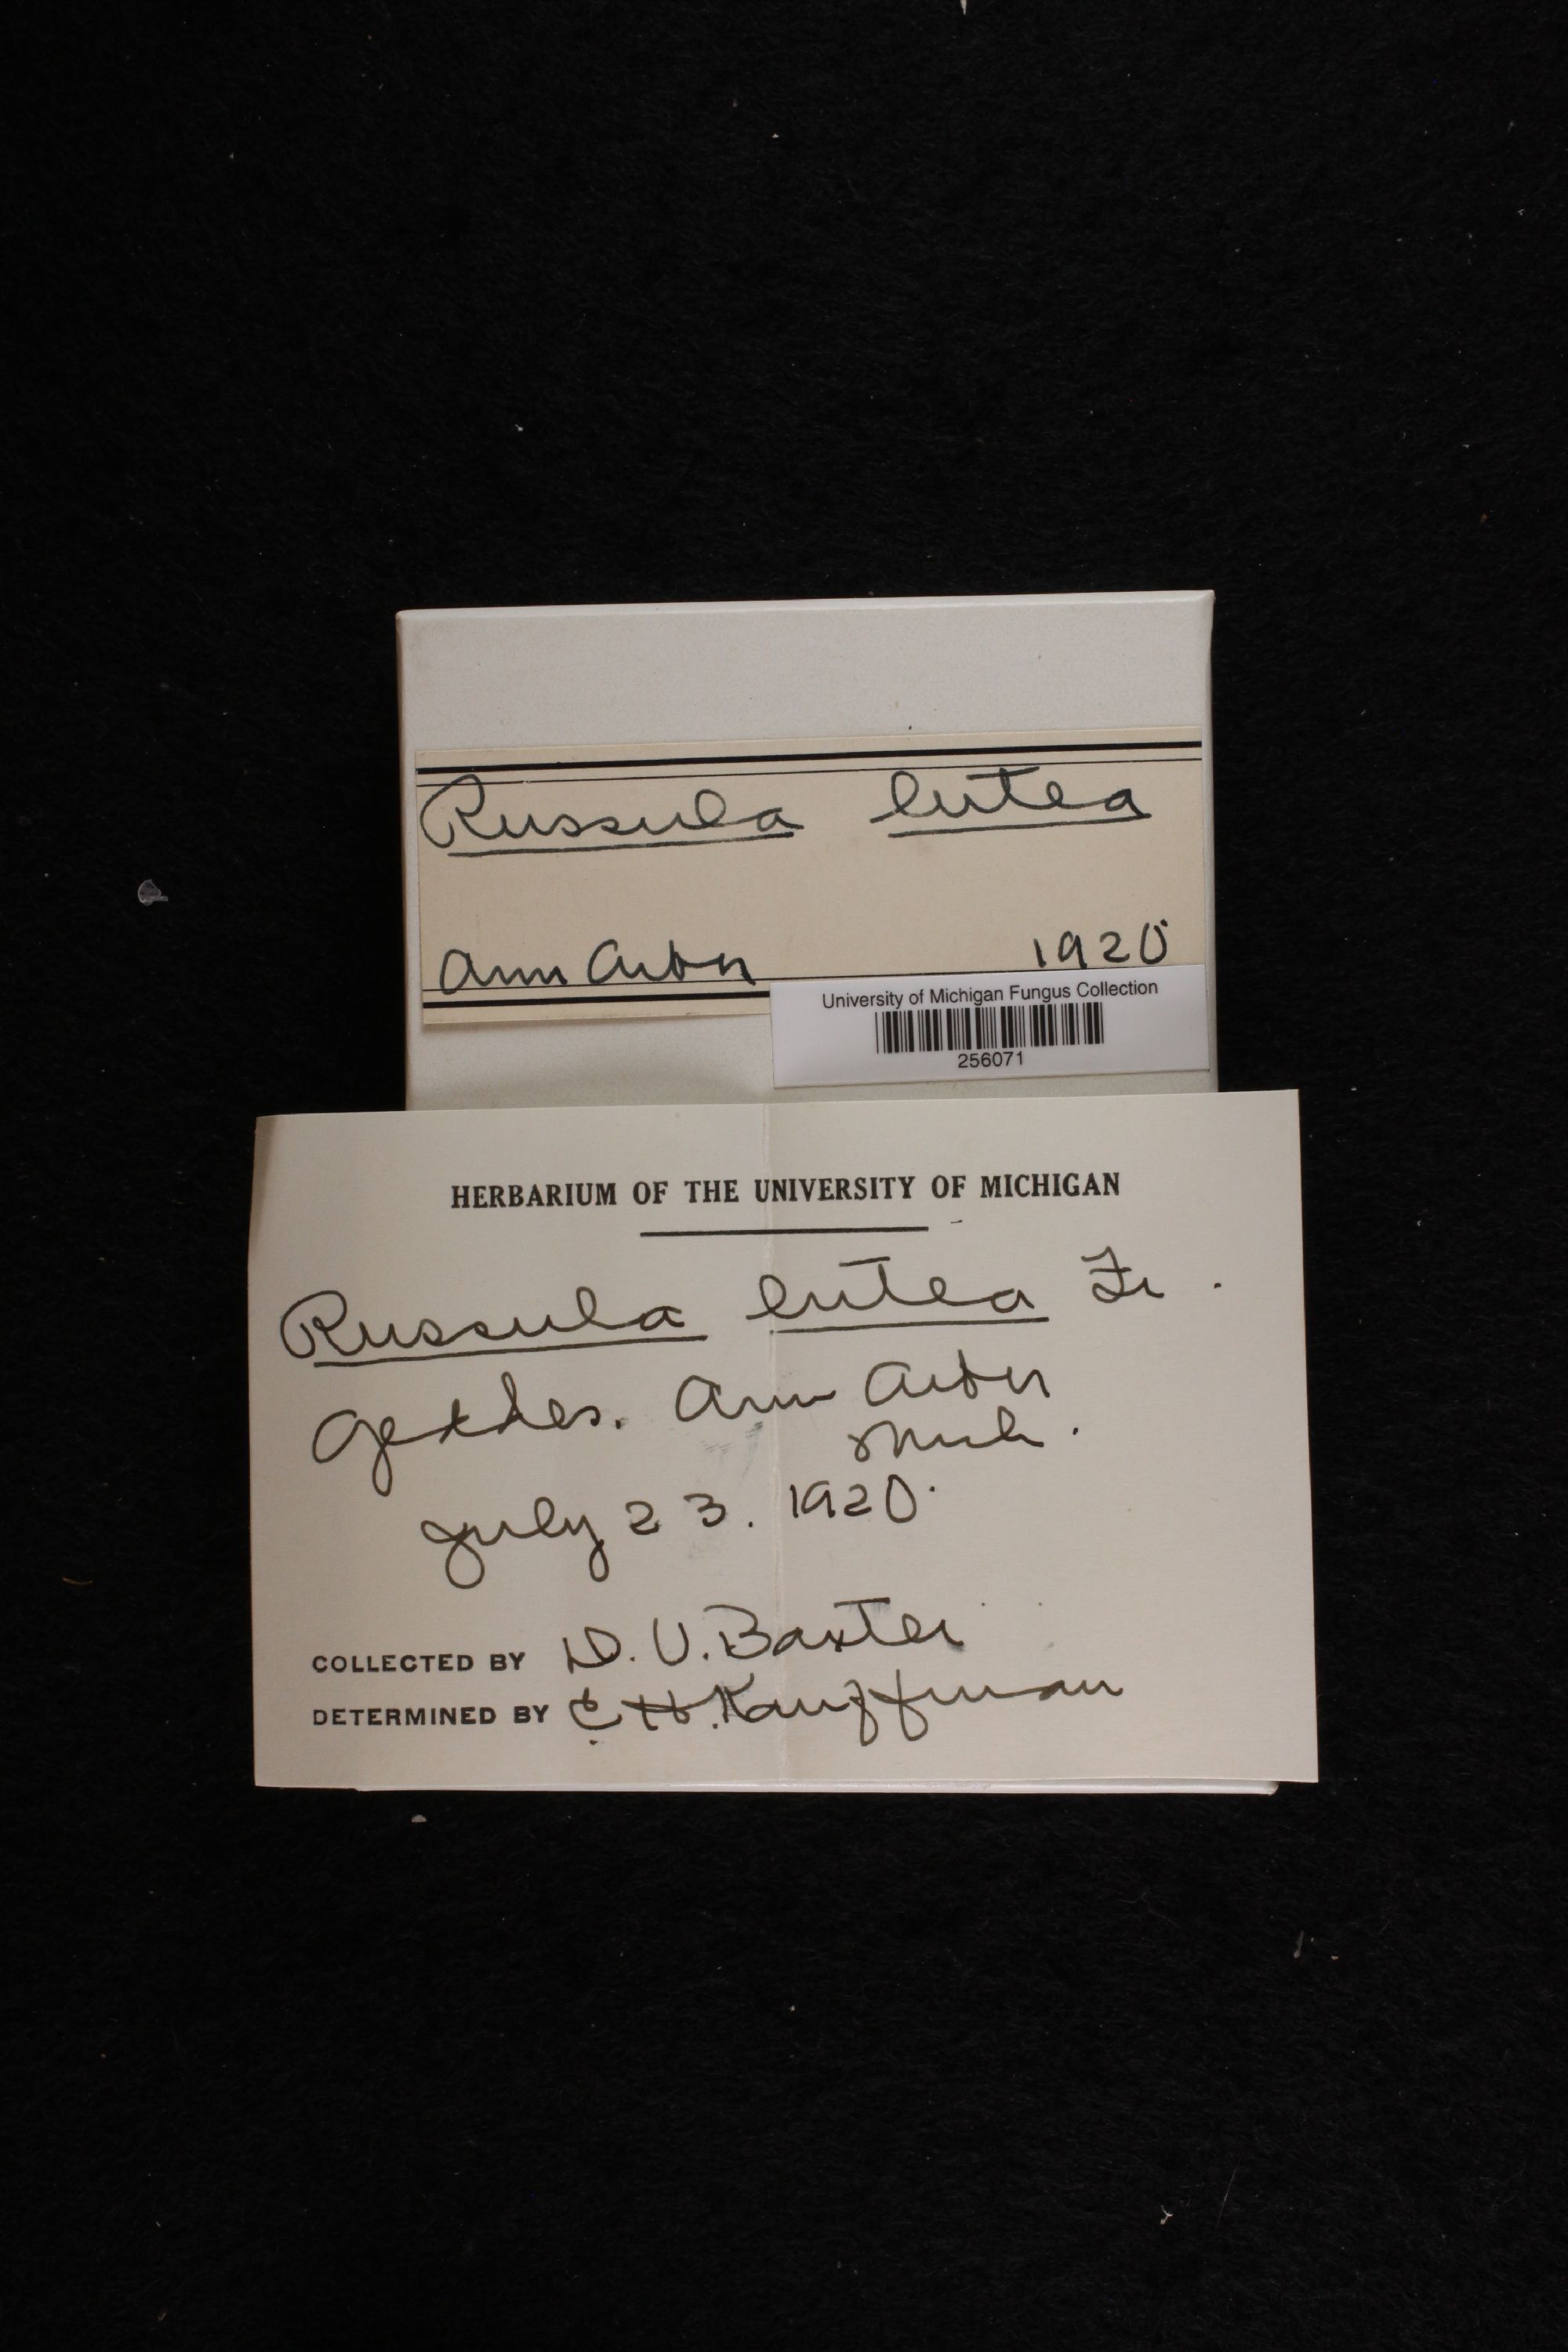 Russula lutea
Ann Arbor 1920
University of Michigan Fungus Collection
256071
HERBARIUM OF THE UNIVERSITY OF MICHIGAN
Russula lutea Fr.
Geddes. Ann Arbor
Mich.
July 23. 1920.
COLLECTED BY D. V. Baxter
DETERMINED BY C. H. Kauffman